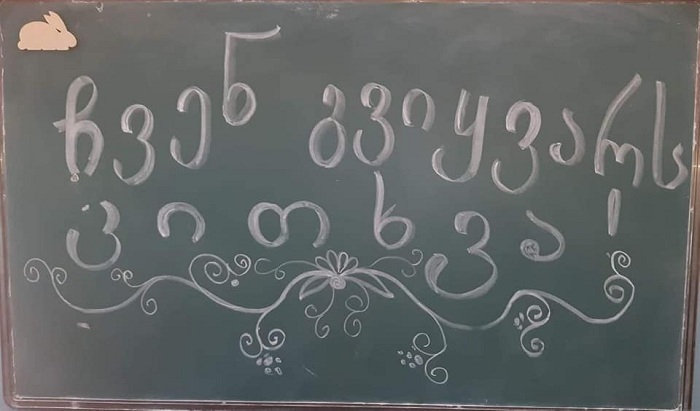 ჩვენ გვიყვარს
კითხვა!